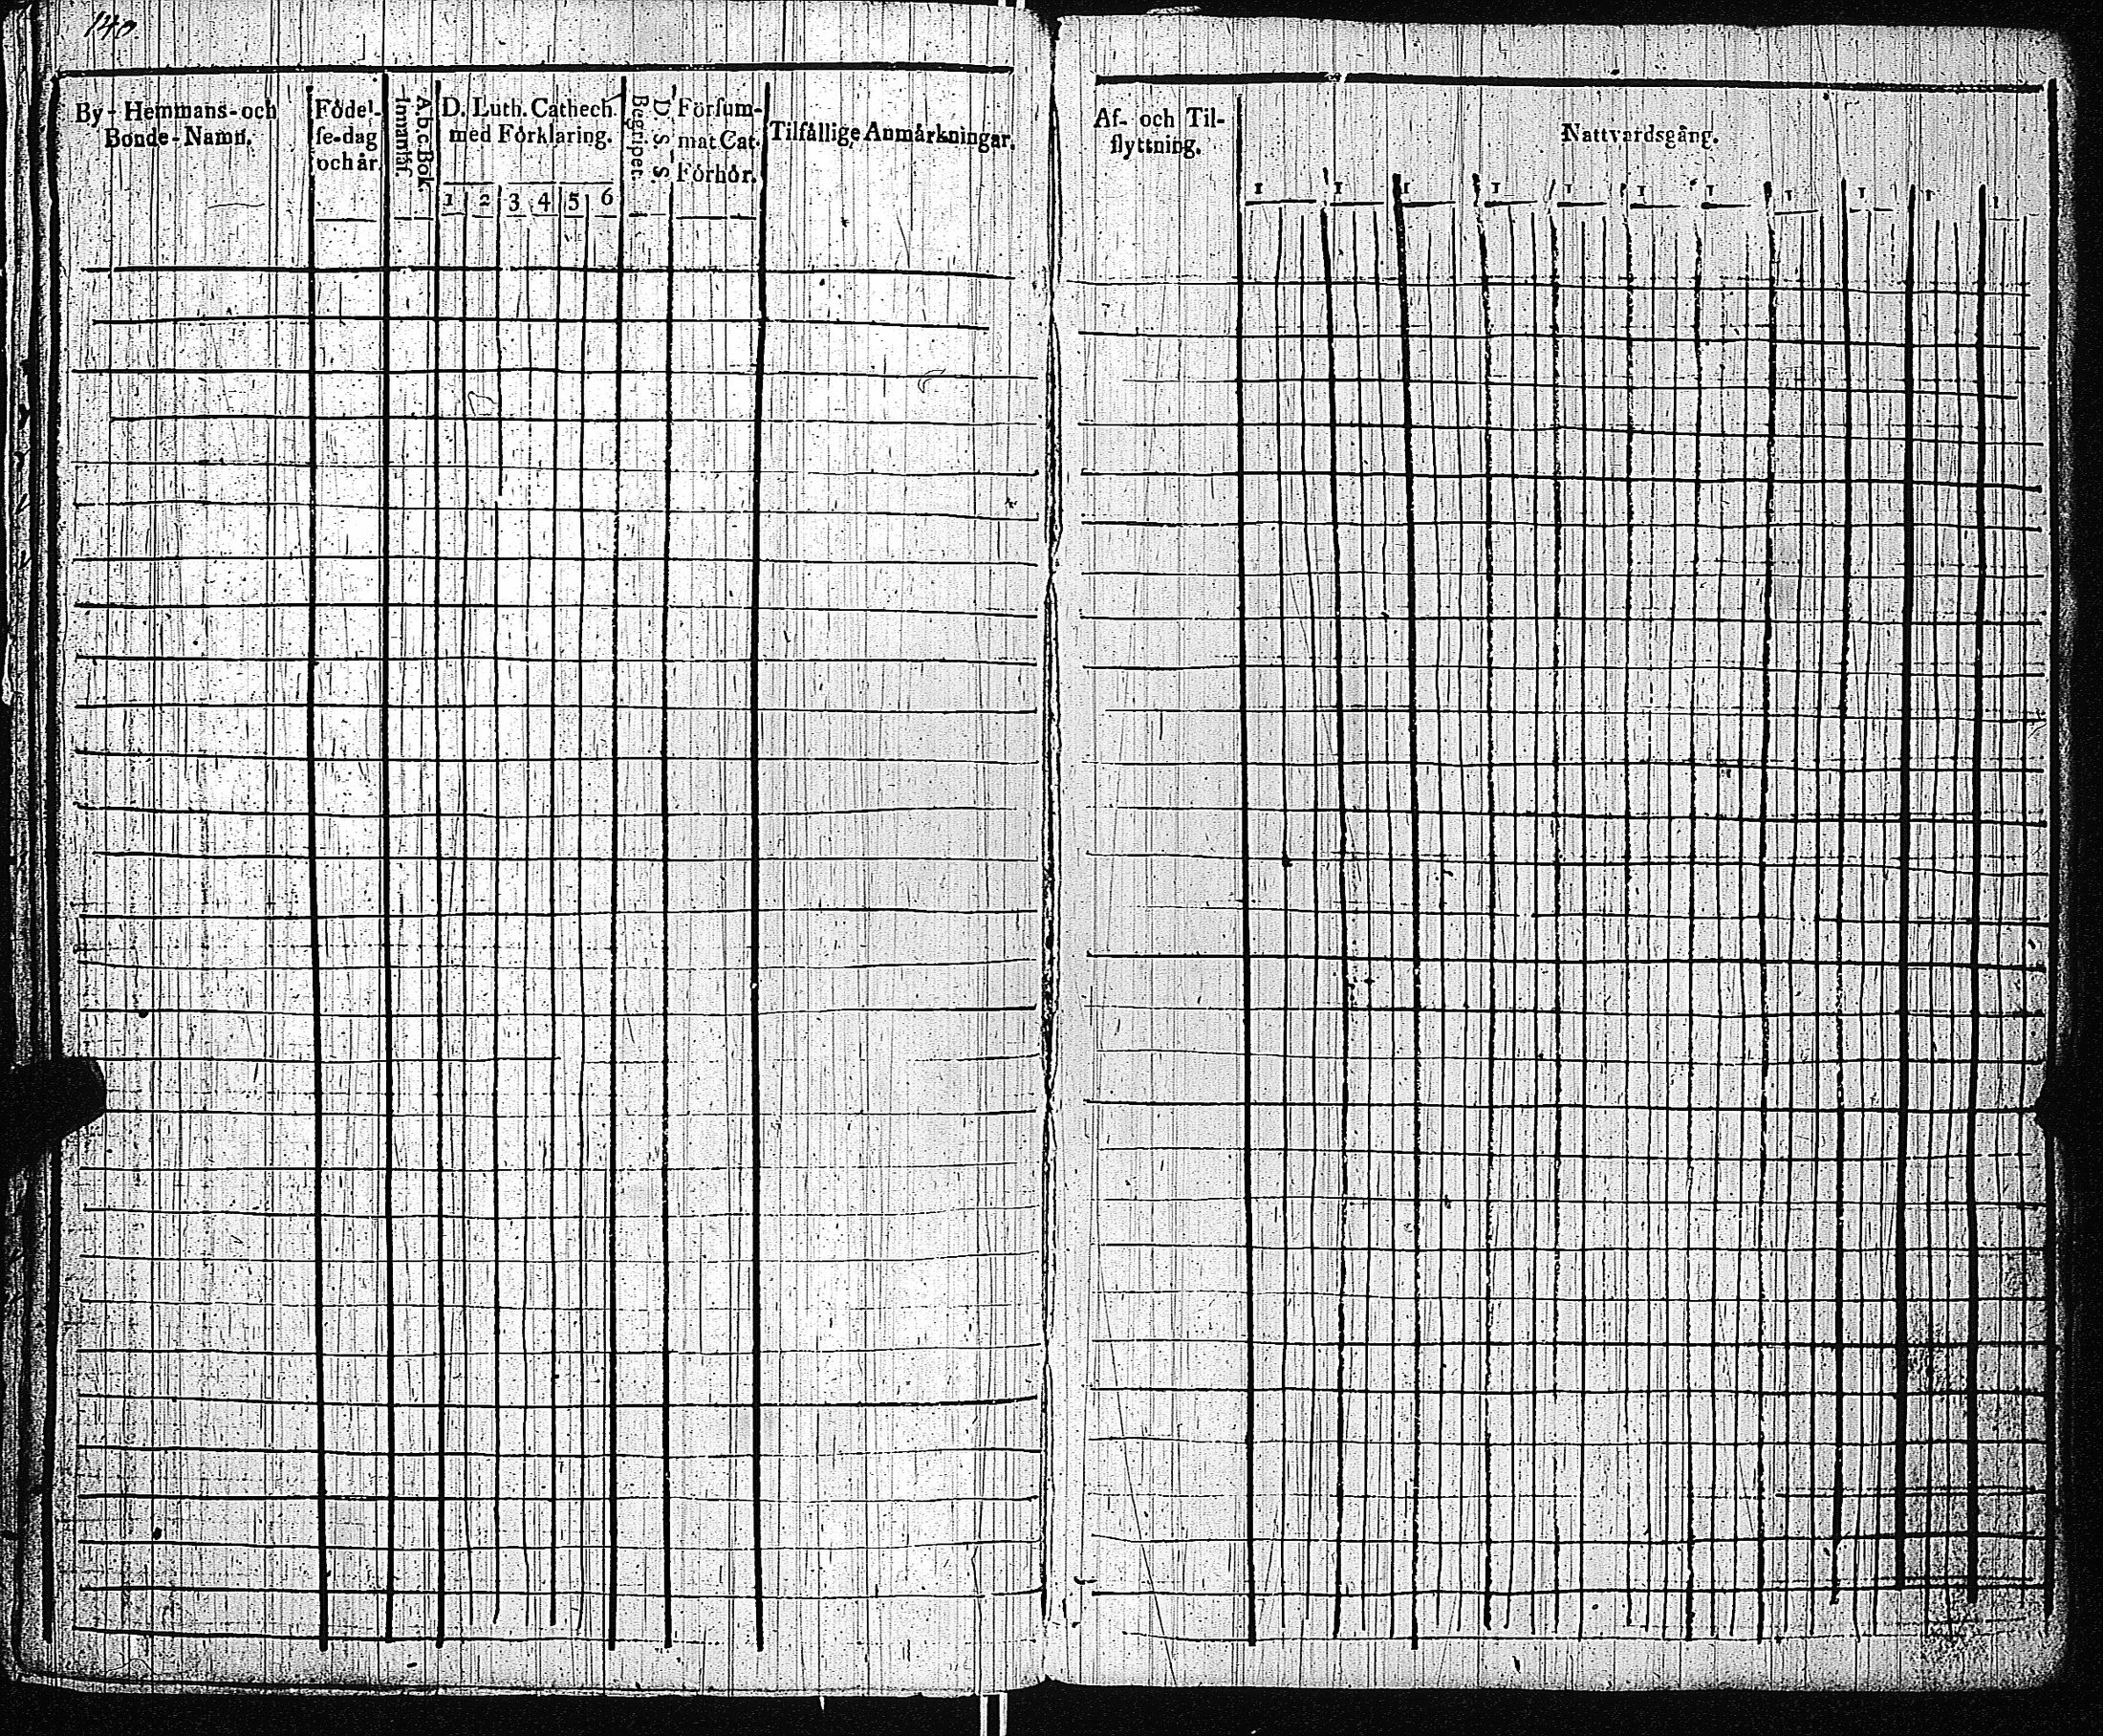 140
By-Hemmans-och
Bonde-Namn.
Födel-
ſe-dag
och år.
A.b.c.Bok
Innantill.
D. Luth. Cathech.
med Förklaring.
1 2 3 4 5 6
Begriper.
D. S. S.
Förſum-
mat Cat.
Förhör.
Tilfällige Anmärkningar.
Af- och Til-
flyttning.
Nattvardsgång.
1 1 1 1 1 1 1 1 1 1 1